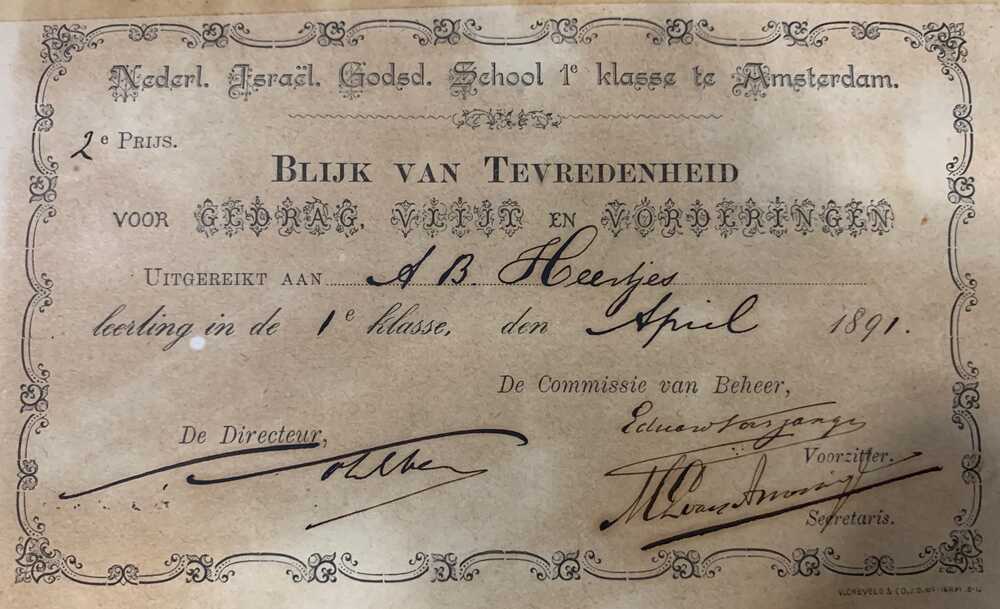 Nederl. Israël. Godsd. School 1e klasse te Amsterdam.
2e PRIJS.
BLIJK VAN TEVREDENHEID
VOOR GEDRAG, VLIJT EN VORDERINGEN
UITGEREIKT AAN A B. Heertjes
leerling in de 1e klasse, den April 1891.
De Commissie van Beheer,
De Directeur,
Voorzitter.
Secretaris.